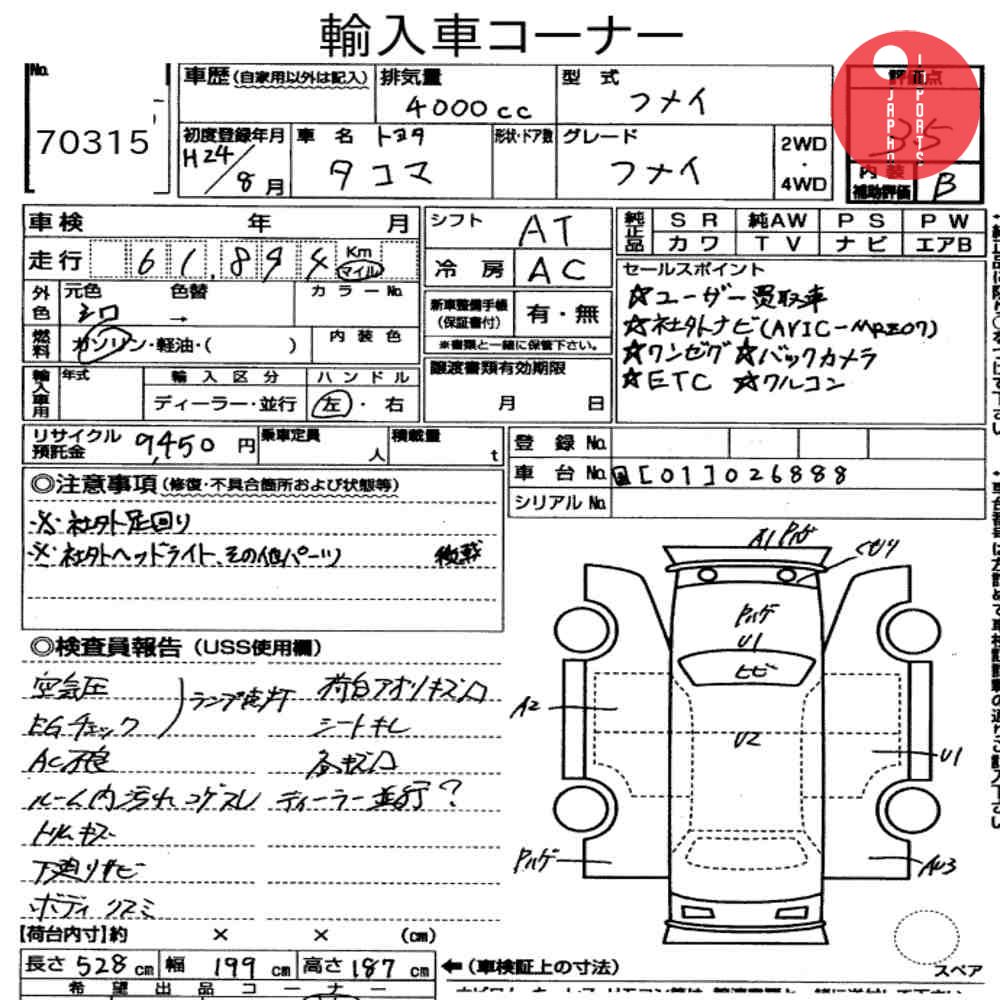 輸入車コーナー
No.
70315
車歴(自家用以外は記入)
排気量
4000cc
型 式
フメイ
評価点
3.5
JAPHO IMPORTS
初度登録年月
H24/8月
車 名 トヨタ
タコマ
形状・ドア数
グレード
フメイ
2WD
・
4WD
内装
補助評価
B
車検 年 月
走行 61,894 Km
マイル
外色 元色 色替 カラーNo.
シロ →
燃料 ガソリン・軽油・( ) 内装色
輸入車用 年式 輸入区分 ハンドル
ディーラー・並行 左・右
シフト AT
冷房 AC
新車整備手帳
(保証書付)
有・無
※書類と一緒に保管下さい。
譲渡書類有効期限
月 日
純正品 SR 純AW PS PW
カワ TV ナビ エアB
セールスポイント
☆ユーザー買取車
☆社外ナビ(AVIC-MRZ07)
☆ワンセグ☆バックカメラ
☆ETC ☆ワルコン
リサイクル
預託金
9,450円
乗車定員
人
積載量
t
登録No.
車台No. 国[01]026888
シリアルNo.
◎注意事項(修復・不具合箇所および状態等)
※社外足回り
※社外ヘッドライト、その他パーツ 後載
◎検査員報告(USS使用欄)
空気圧
EGチェック
ランプ点灯
荷台アオリキズ凹
シートキレ
AC不良
各キズ凹
ルーム内汚れコゲスレ ディーラー並行?
トリムキズ
下廻りサビ
ボディクスミ
A1 Pハゲ
クモリ
Pハゲ
U1
ヒビ
A2
U2
U1
Pハゲ
AU3
スペア
【荷台内寸】約 × × (cm)
長さ528cm 幅199cm 高さ187cm
←(車検証上の寸法)
希望出品コーナー